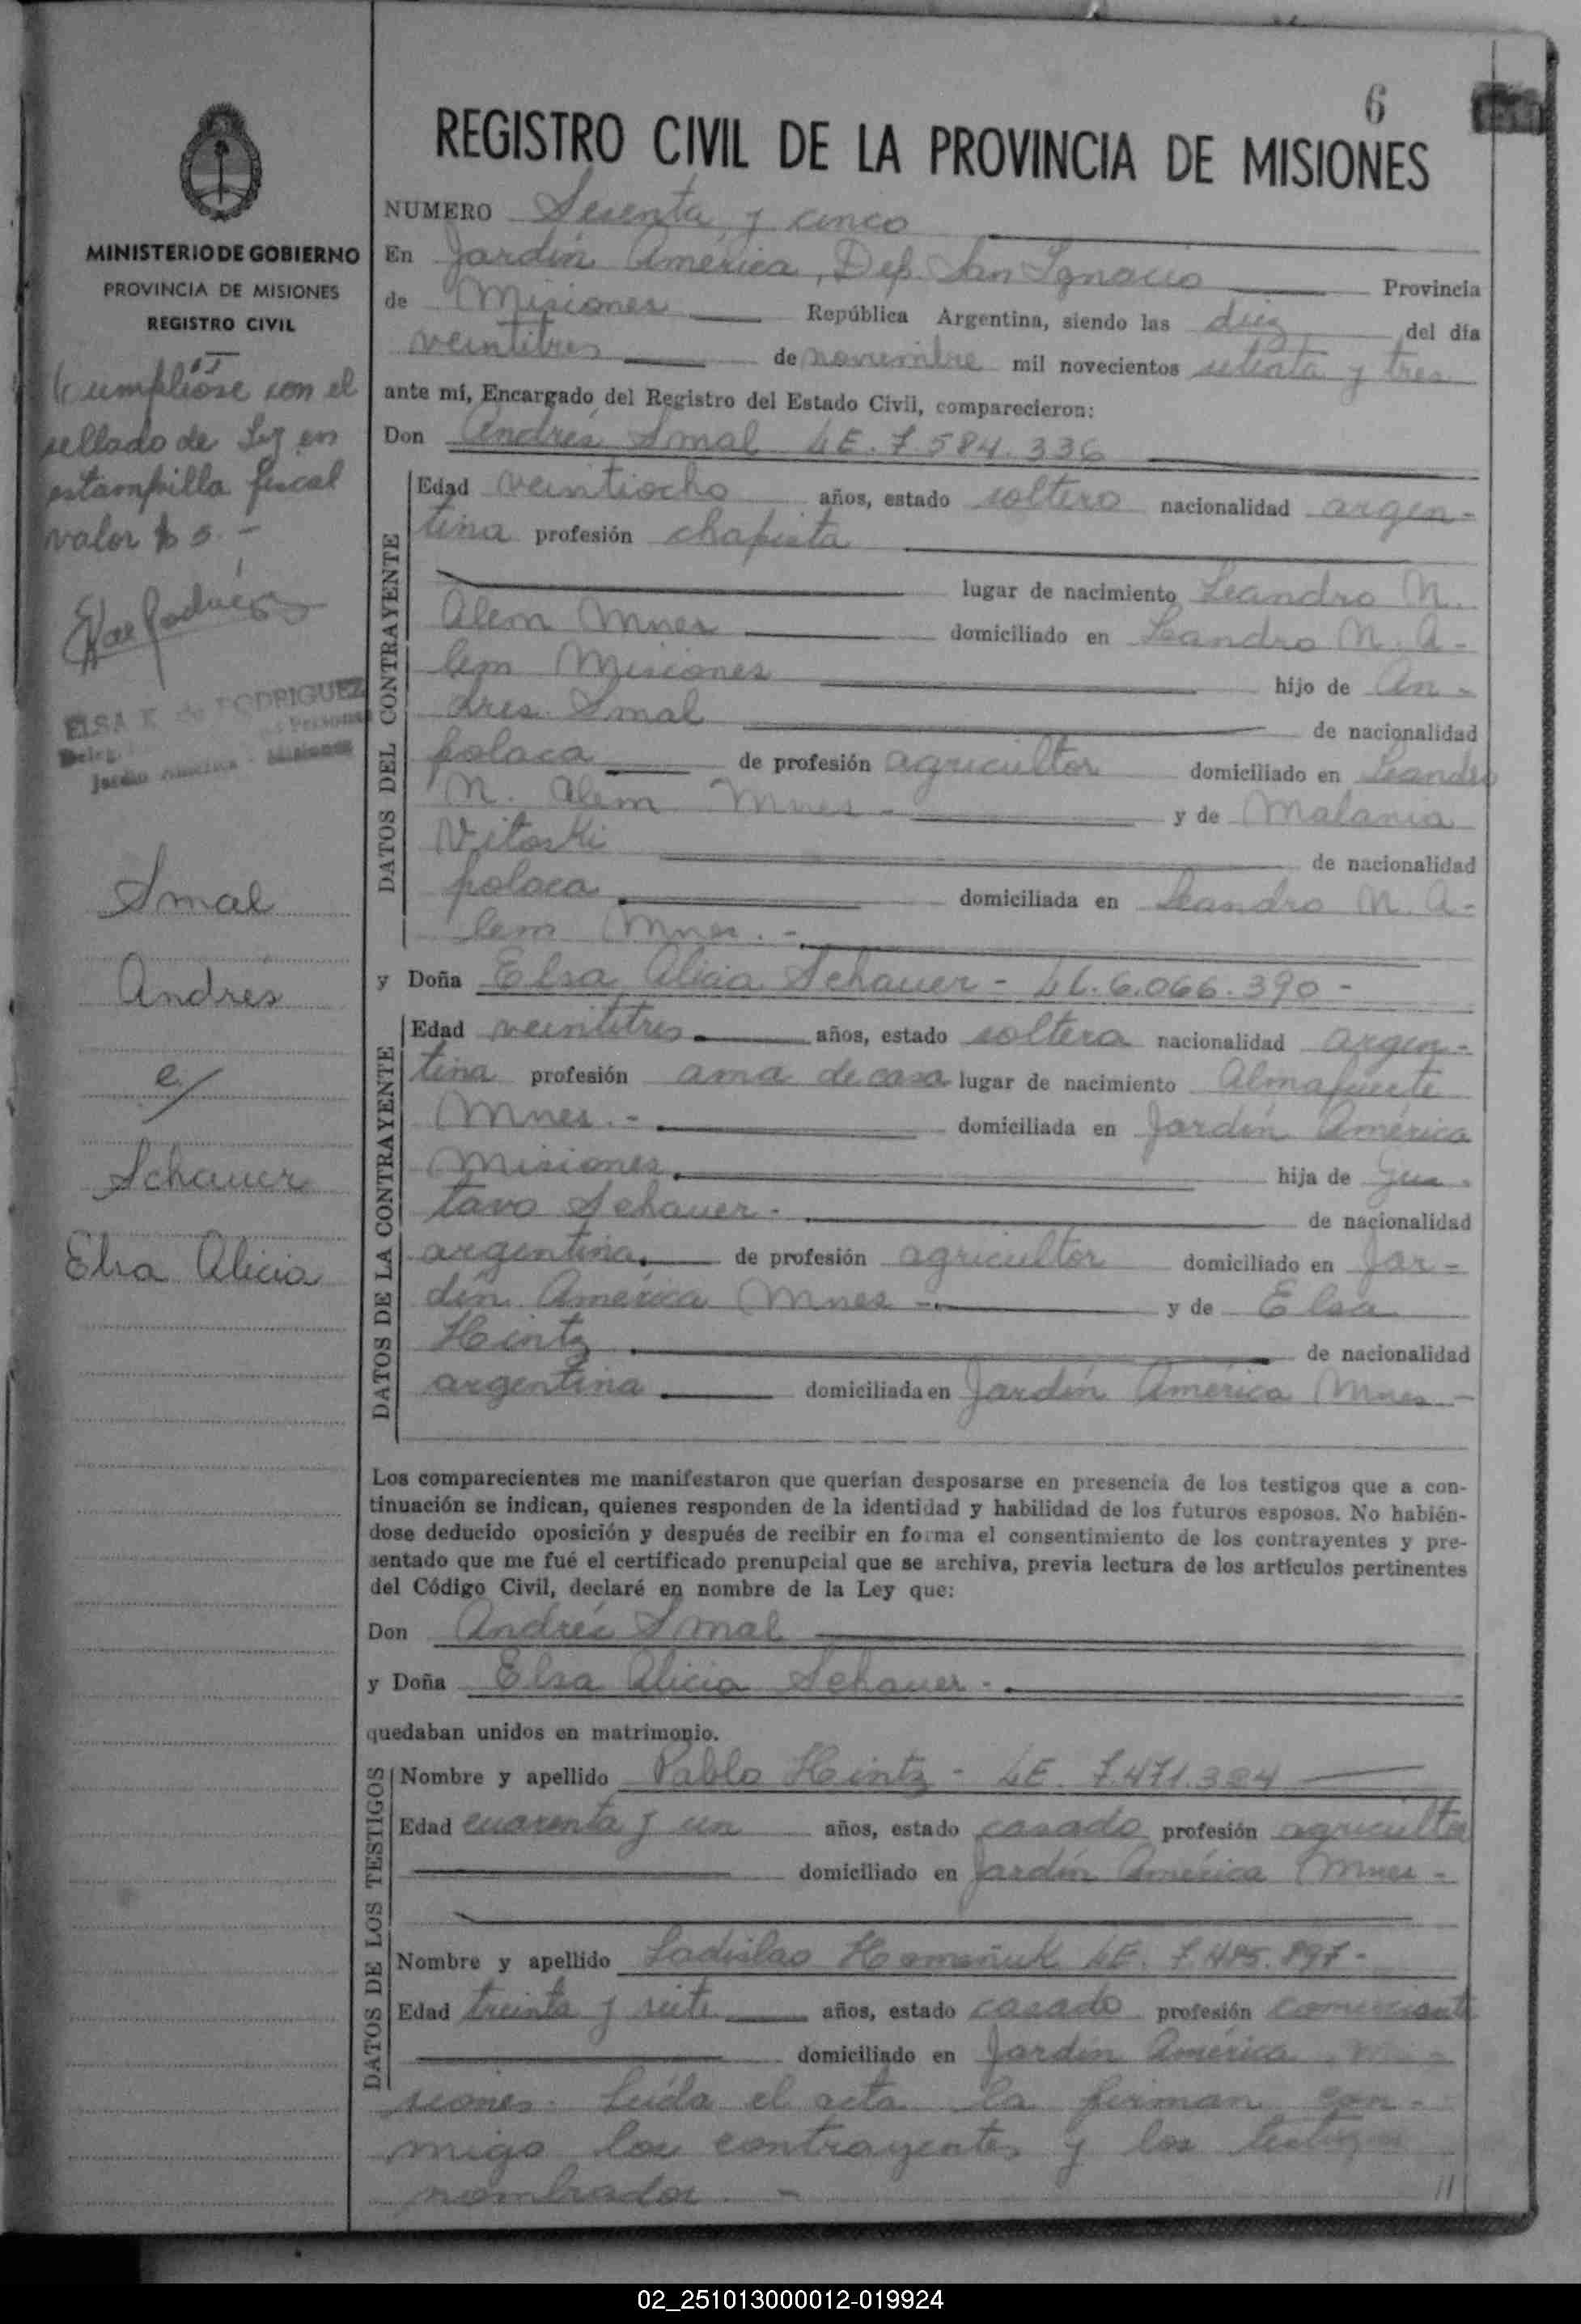 6
REGISTRO CIVIL DE LA PROVINCIA DE MISIONES
MINISTERIO DE GOBIERNO
PROVINCIA DE MISIONES
REGISTRO CIVIL
Cumplióse con el
sellado de Ley en
estampilla fiscal
valor $ 5.-
ELSA E. de RODRIGUEZ
Jardín América - Misiones
Smal
Andrés
c/
Schauer
Elsa Alicia
NUMERO Sesenta y cinco
En Jardín América, Dep. San Ignacio Provincia
de Misiones República Argentina, siendo las diez del día
veintitres de noviembre mil novecientos setenta y tres
ante mí, Encargado del Registro del Estado Civil, comparecieron:
Don Andrés Smal LE. 7.584.336
DATOS DEL CONTRAYENTE
Edad veintiocho años, estado soltero nacionalidad argen-
tina profesión chapista
lugar de nacimiento Leandro N.
Alem Mnes domiciliado en Leandro N. A-
lem Misiones hijo de An-
dres Smal de nacionalidad
polaca de profesión agricultor domiciliado en Leandro
N. Alem Mnes - y de Malania
Vitoski de nacionalidad
polaca domiciliada en Leandro N. A-
lem Mnes. -
y Doña Elsa Alicia Schauer - LC. 6.066.390 -
DATOS DE LA CONTRAYENTE
Edad veintitres años, estado soltera nacionalidad argen-
tina profesión ama de casa lugar de nacimiento Almafuerte
Mnes. - domiciliada en Jardín América
Misiones hija de Gus-
tavo Schauer - de nacionalidad
argentina de profesión agricultor domiciliado en Jar-
dín América Mnes - y de Elsa
Hintz de nacionalidad
argentina domiciliada en Jardín América Mnes -
Los comparecientes me manifestaron que querían desposarse en presencia de los testigos que a con-
tinuación se indican, quienes responden de la identidad y habilidad de los futuros esposos. No habién-
dose deducido oposición y después de recibir en forma el consentimiento de los contrayentes y pre-
sentado que me fué el certificado prenupcial que se archiva, previa lectura de los artículos pertinentes
del Código Civil, declaré en nombre de la Ley que:
Don Andrés Smal
y Doña Elsa Alicia Schauer -
quedaban unidos en matrimonio.
DATOS DE LOS TESTIGOS
Nombre y apellido Pablo Hintz - LE. 7.471.324
Edad cuarenta y un años, estado casado profesión agricultor
domiciliado en Jardín América Mnes -
Nombre y apellido Ladislao Homeñuk LE. 7.485.897 -
Edad treinta y siete años, estado casado profesión comerciante
domiciliado en Jardín América, Mi-
siones. Leída el acta la firman con-
migo los contrayentes y los testigos
nombrados. -
//
02_251013000012-019924